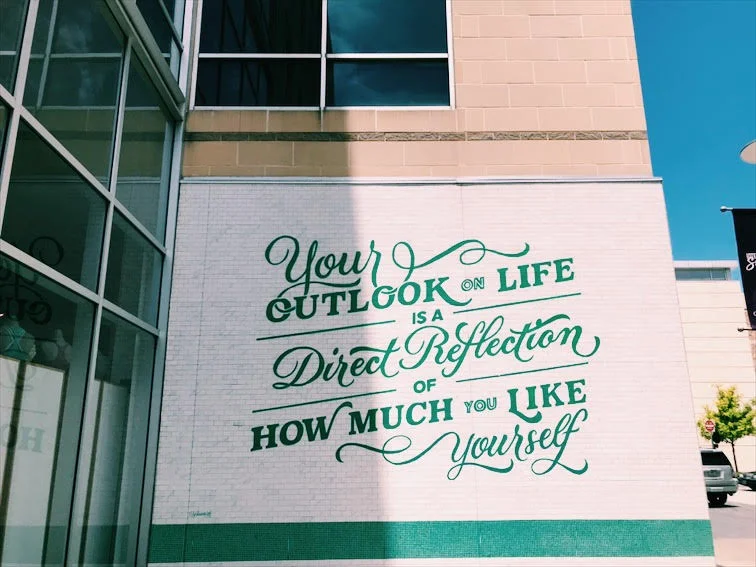 Your
OUTLOOK ON LIFE
IS A
Direct Reflection
OF
HOW MUCH YOU LIKE
yourself